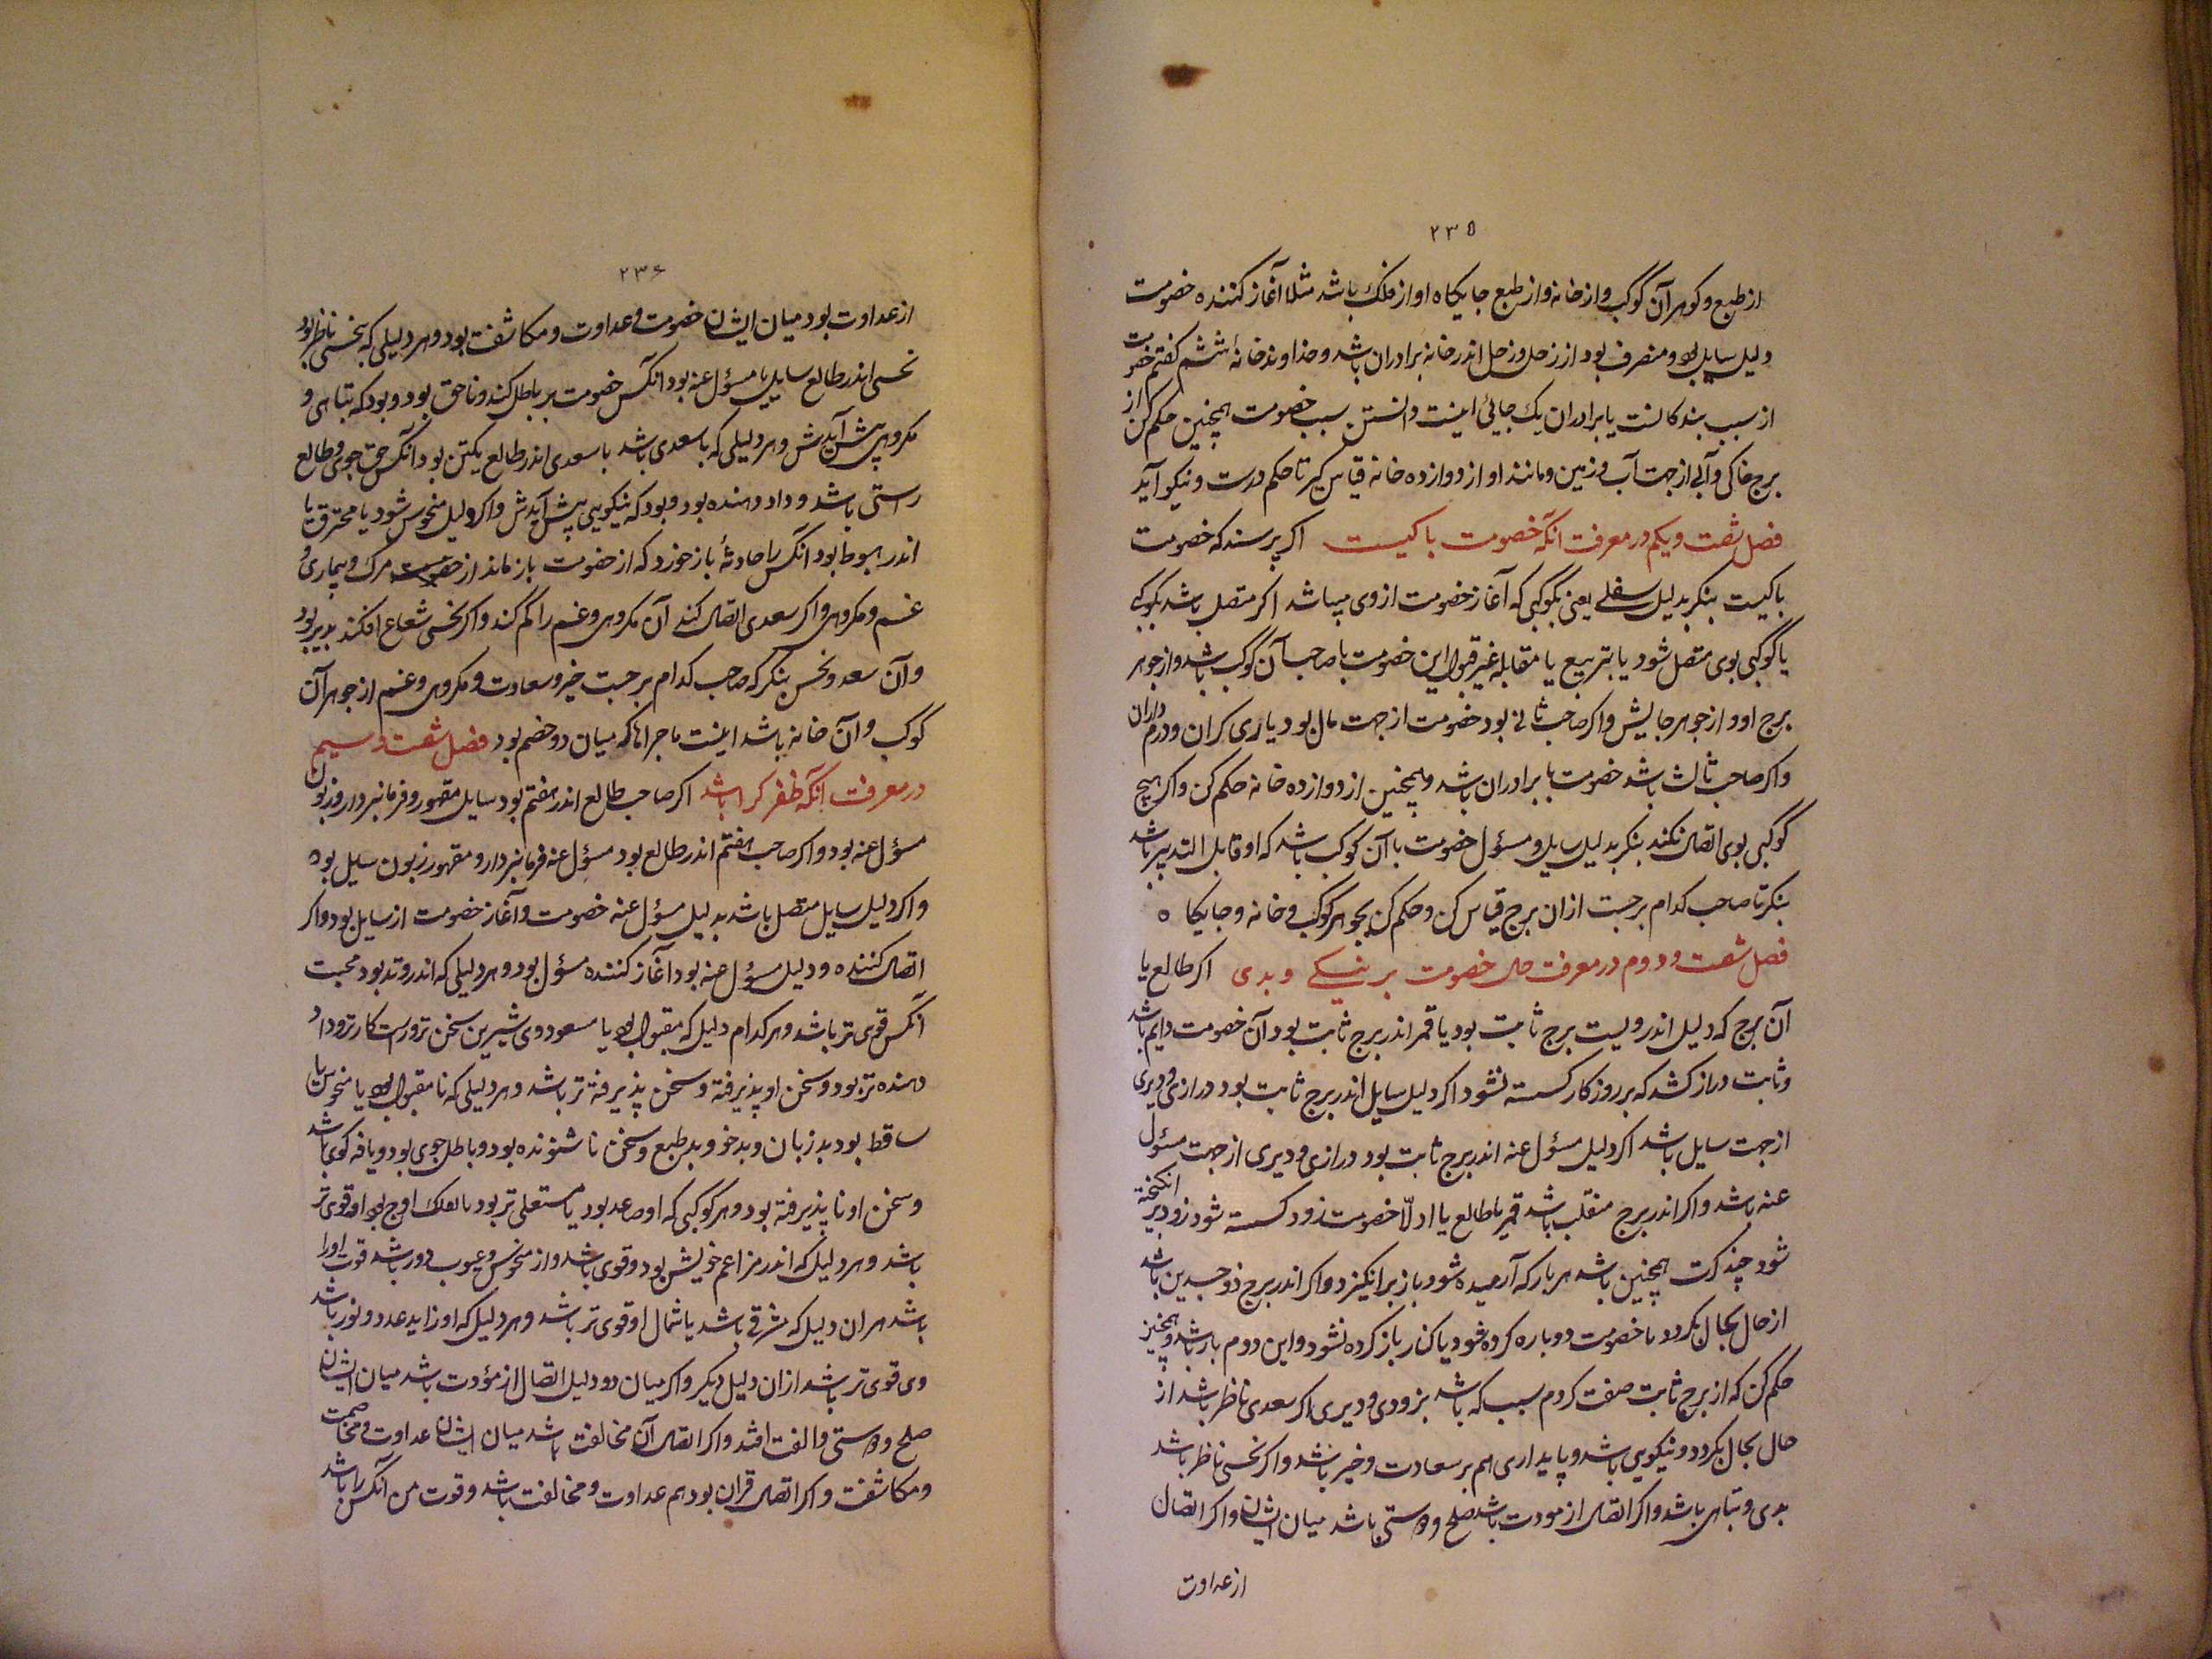 ۲۳۵
از طبع و کوهر آن کوکب و از خانه و از طبع جایکاه او از فلک باشد مثلا آغاز کننده خصومت
دلیل سایل بود و منصرف بود از زحل و زحل اندر خانه برادران باشد و خداوند خانهٔ ششم کفتم خصومت
از سبب بندکانست یا برادران یک جائی اینست دانستن سبب خصومت همچنین حکم کن از
برج خاکی و آبی از جهت آب و زمین و مانند او از دوازده خانه قیاس کیر تا حکم درست و نیکو آید
فصل شصت و یکم در معرفت آنکه خصومت با کیست اکر پرسند که خصومت
با کیست بنکر بدلیل سفلی یعنی بکوکبی که آغاز خصومت از وی میباشد اکر متصل باشد بکوکبی
یا کوکبی بوی متصل شود یا بتربیع یا مقابله غیر قبول این خصومت با صاحب آن کوکب باشد و از جوهر
برج او و از جوهر جایش و اکر صاحب ثانی بود خصومت از جهت مال بود یاری کران و درم داران
و اکر صاحب ثالث باشد خصومت با برادران باشد و همچنین از دوازده خانه حکم کن و اکر هیچ
کوکبی بوی اتصال نکند بنکر بدلیل سایل و مسؤل خصومت با آن کوکب باشد که او قابل التدبیر باشد
بنکر تا صاحب کدام برجست از ان برج قیاس کن و حکم کن بجوهر کوکب و خانه و جایکاه
فصل شصت و دوم در معرفت حال خصومت بر نیکی و بدی اکر طالع یا
آن برج که دلیل اندرویست برج ثابت بود یا قمر اندر برج ثابت بود آن خصومت دایم باشد
و ثابت دراز کشد که بر روزکار کسسته نشود اکر دلیل سایل اندر برج ثابت بود درازی و دیری
از جهت سایل باشد اکر دلیل مسؤل عنه اندر برج ثابت بود درازی و دیری از جهت مسئول
عنه باشد و اکر اندر برج منقلب باشد قمر یا طالع یا ادلّا خصومت زود کسسته شود زود بر انکیخته
شود چند کرت همچنین باشد هر بار که آرمیده شود باز برانکیزد و اکر اندر برج ذو جسدین باشد
از حال بحال بکردد یا خصومت دوباره کرده شود یا کنار باز کرده نشود و این دوم بار باشد و همچنین
حکم کن که از برج ثابت صفت کردم سبب که باشد بزودی و دیری اکر سعدی ناظر باشد از
حال بحال بکردد و نیکویی باشد و پایداری هم بر سعادت و خیر باشد و اکر نحسی ناظر باشد
بدی و تباهی باشد و اکر اتصال از مودت باشد صلح و دوستی باشد میان ایشان و اکر اتصال
از عداوت
۲۳۶
از عداوت بود میان ایشان خصومت و عداوت و مکاشفت بود و هر دلیلی که نحسی ناظر بود
نحسی اندر طالع سایل یا مسؤل عنه بود آنکس خصومت بر باطل کند و ناحق بود و بود که تباهی و
مکروهی پیش آیدش و هر دلیلی که با سعدی باشد یا سعدی اندر طالع یکتن بود آنکس حق جوی و طالع
راستی باشد و داد دهنده بود و بود که نیکویی پیش آیدش و اکر دلیل منحوس شود یا محترق یا
اندر هبوط بود آنکس را حادثهٔ باز خورد که از خصومت باز ماند از مرک و بیماری
غم و مکروهی و اکر سعدی اتصال کند آن مکروهی و غم را کم کند و اکر نحسی شعاع افکند بدیر بود
و آن سعد و نحس بنکر که صاحب کدام برجست خیر و سعادت و مکروهی و غم از جوهر آن
کوکب و آن خانه باشد اینست ماجراها که میان دو خصم بود فصل شصت و سیم
در معرفت آنکه ظفر کرا باشد اکر صاحب طالع اندر هفتم بود سایل مقهور و فرمانبردار و زبون
مسؤل عنه بود و اکر صاحب هفتم اندر طالع بود مسؤل عنه فرمانبردار و مقهور زبون سایل بود
و اکر دلیل سایل متصل باشد بدلیل مسؤل عنه خصومت و آغاز خصومت از سایل بود و اکر
اتصال کننده دلیل مسؤل عنه بود آغاز کننده مسؤل بود و هر دلیلی که اندر وتد بود محبت
آنکس قوی تر باشد و هر کدام دلیل که مقبول بود یا مسعود وی شیرین سخن تر و راست کارتر و داد
دهنده تر بود و سخن او پذیرفته و سخن پذیرفته تر باشد و هر دلیلی که نامقبول بود یا منحوس یا
ساقط بود بد زبان و بدخو و بد طبع و سخن ناشنونده بود و باطل جوی بود و یافه کوی باشد
و سخن او ناپذیرفته بود و هر کوکبی که او صاعد بود یا مستعلی تر بود بالفلک اوج بود او قوی تر
باشد و هر دلیل که اندر مزاعم خویش بود و قوی باشد و از منحوس و عیوب دور باشد قوت او را
باشد هر ان دلیل که مشرقی باشد یا شمال او قوی تر باشد و هر دلیل که او زاید عدد و نور باشد
وی قوی تر باشد از ان دلیل دیکر و اکر میان دو دلیل اتصال از مؤدت باشد میان ایشان
صلح و دوستی و الفت افتد و اکر اتصال آن مخالفت باشد میان ایشان عداوت و مخاصمت
و مکاشفت و اکر اتصال قران بود هم عداوت و مخالفت باشد و قوت من آنکس را باشد